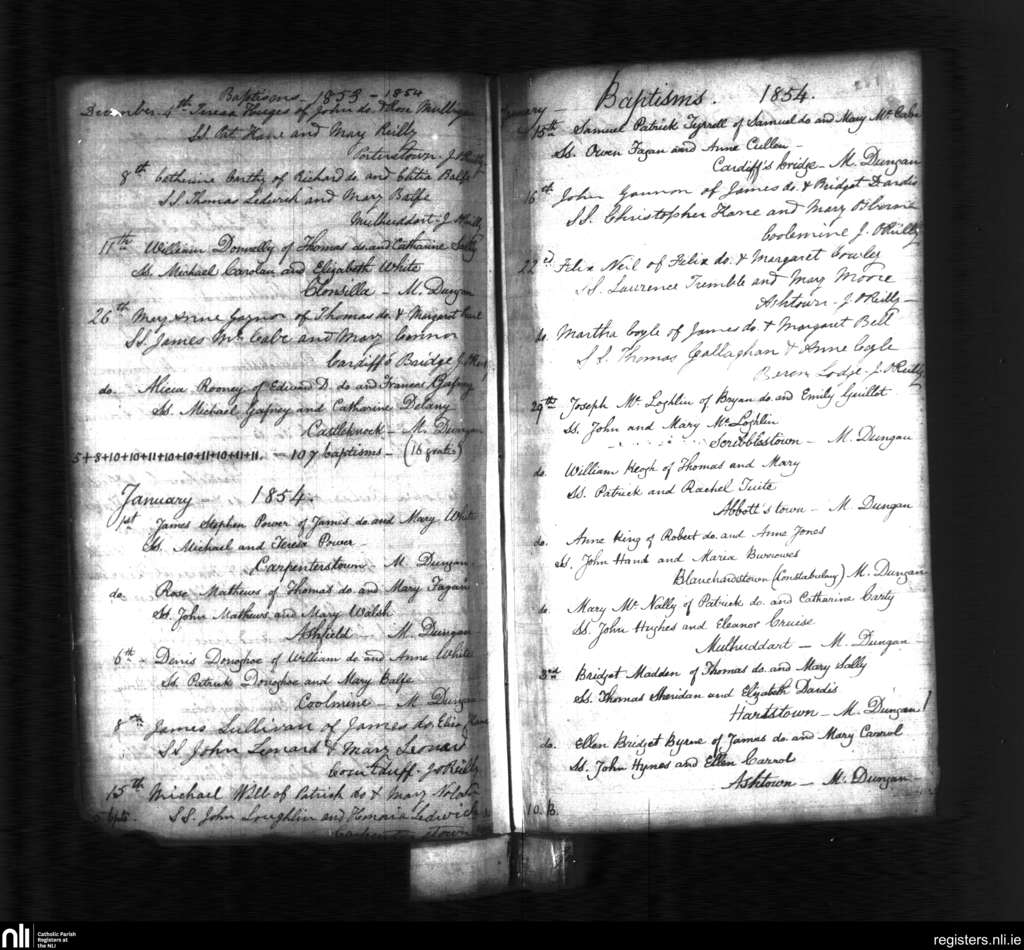 Baptisms 1853 - 1854
December 4th Teresa of John do. & Rose
SS. Pat Kane and Mary Reilly
Porterstown - J. O'Reilly
8th Catherine of Richard do. and Balfe
SS Thomas Lederick and Mary Balfe
Mulhuddart - J. O'Reilly
11th William Donnelly of Thomas do. and Catharine
Ss. Michael Carolan and Elizabeth White
Clonsilla - M. Dungan
26th Mary Anne Gaynor of Thomas do. & Margaret
SS. James Mc Cabe and Mary Connor
Cardiff's Bridge J.
do. Alicia Rooney of Edward D. do and Frances Gafney
Ss. Michael Gafney and Catharine Delany
Castleknock - M. Dungan
5+8+10+10+11+10+10+11+10+11+11. - 107 baptisms -
January - 1854.
1st James Stephen Power of James do. and Mary White
Ss. Michael and Teresa Power -
Carpenterstown - M Dungan
do Rose Mathews of Thomas do and Mary Fagan
Ss. John Mathews and Mary Walsh
Ashfield - M. Dungan
6th - Denis Donohoe of William do and Anne White
Ss. Patrick Donohoe and Mary Balfe
Coolmine - M Dungan
8th James Sullivan of James do.
SS John Lenard & Mary Leonard
Courtduff - J O'Reilly
15th Michael Will of Patrick do & Mary Nolan
SS. John Loughlin and Honoria Ledwick
January - Baptisms. 1854.
15th Samuel Patrick Tyrrell of Samuel do and Mary Mc Cabe
Ss. Owen Fagan and Anne Cullen -
Cardiff's bridge - M. Dungan
16th John Gannon of James do. & Bridget Dardis
SS. Christopher Kane and Mary Osborne
Coolemine J. O'Reilly
22d Felix Neil of Felix do. & Margaret Fowler
SS. Lawrence Tremble and Mary Moore
Ashtown - J. O'Reilly -
do. Martha Coyle of James do. & Margaret Bell
SS. Thomas Gallaghan & Anne Coyle
Lodge - J. O'Reilly
29th Joseph Mc Loghlin of Bryan do. and Emily Guillot
Ss. John and Mary Mc Loghlin
Scribblestown - M. Dungan
do. William Keogh of Thomas and Mary
Ss. Patrick and Rachel Tuite
Abbott's town - M. Dungan
do. Anne King of Robert do. and Anne Jones
Ss. John Hand and Maria Burrowes
Blanchardstown (Constabulary) M. Dungan
do. Mary Mc Nally of Patrick do. and Catharine Carty
Ss. John Hughes and Eleanor Cruise
Mulhuddart - M. Dungan
Bridget Madden of Thomas do. and Mary Lally
Ss. Thomas Sheridan and Elizabeth Dardis
Hartstown - M. Dungan
do. Ellen Bridget Byrne of James do. and Mary Carrol
Ss. John Hynes and Ellen Carrol
Ashtown - M. Dungan
10. B.
nli
Catholic Parish
Registers at
the NLI
registers.nli.ie